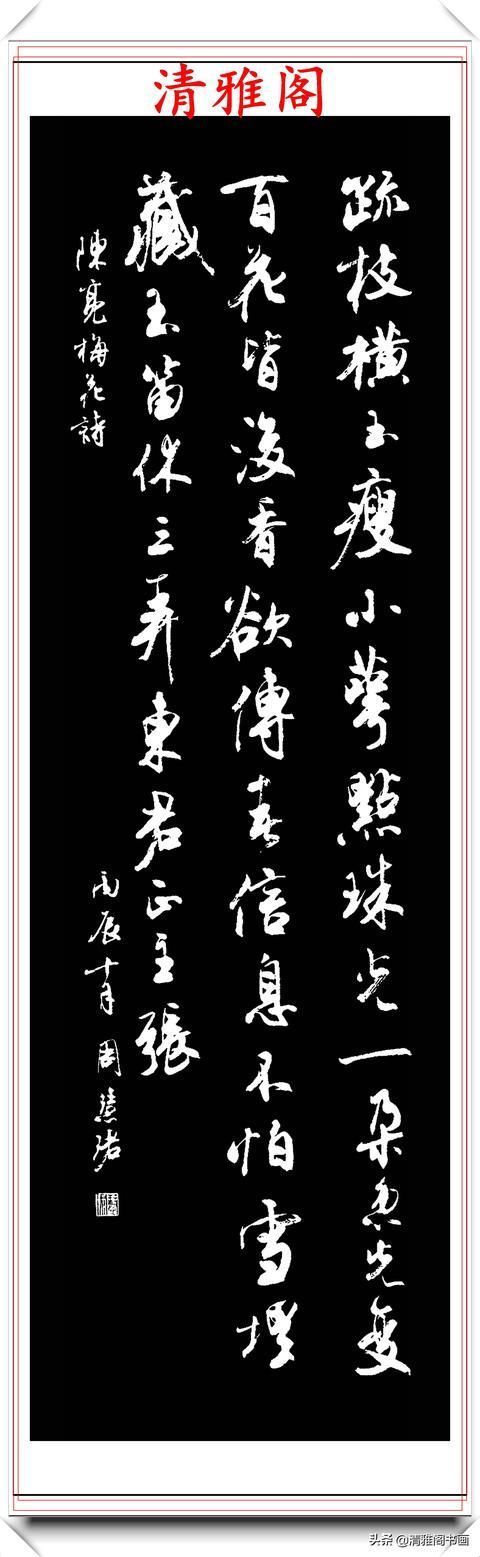 清雅阁
疏枝橫玉瘦小萼點珠光一朵忽先變
百花皆後香欲傳春信息不怕雪埋
藏玉笛休三弄東君正主張
陳亮梅花詩
丙辰十月 周慧珺
头条 @清雅阁书画